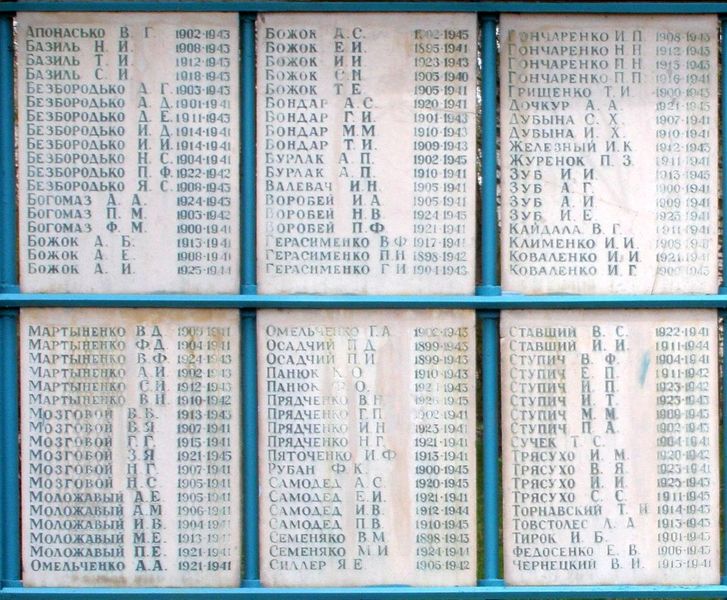 Апонасько В. Г. 1902-1943
Базиль Н. И. 1908-1943
Базиль Т. И. 1912-1943
Базиль С. И. 1918-1943
Безбородько А. Г. 1903-1943
Безбородько А. Д. 1901-1941
Безбородько Д. Е. 1911-1943
Безбородько И. Д. 1914-1941
Безбородько И. И. 1914-1941
Безбородько Н. С. 1904-1941
Безбородько П. Ф. 1922-1942
Безбородько Я. С. 1908-1943
Богомаз А. А. 1924-1943
Богомаз П. М. 1903-1942
Богомаз Ф. М. 1900-1941
Божок А. Б. 1913-1941
Божок А. Е. 1908-1941
Божок А. И. 1925-1944
Божок Д. С. 1902-1945
Божок Е. И. 1895-1941
Божок И. И. 1923-1943
Божок С. Н. 1903-1940
Божок Т. Е. 1905-1941
Бондар А. С. 1920-1941
Бондар Г. И. 1901-1943
Бондар М. М. 1910-1943
Бондар Т. И. 1909-1943
Бурлак А. П. 1902-1945
Бурлак А. П. 1910-1941
Валевач И. Н. 1905-1941
Воробей И. А. 1905-1941
Воробей Н. В. 1924-1945
Воробей П. Ф. 1921-1941
Герасименко В. Ф. 1917-1941
Герасименко П. И. 1898-1942
Герасименко Г. И. 1904-1943
Гончаренко И. П. 1908-1943
Гончаренко Н. Н. 1912-1943
Гончаренко П. Н. 1913-1943
Гончаренко П. П. 1916-1941
Грищенко Т. И. 1900-1943
Дочкур А. А. 1921-1943
Дубына С. Х. 1907-1941
Дубына И. Х. 1910-1941
Железный И. К. 1912-1943
Журенок П. З. 1911-1941
Зуб И. И. 1913-1943
Зуб А. Г. 1900-1941
Зуб А. И. 1909-1941
Зуб И. Е. 1923-1941
Кайдала В. Г. 1911-1941
Клименко И. И. 1908-1941
Коваленко И. И. 1921-1941
Коваленко И. Г. 1900-1943
Мартыненко В. Д. 1905-1941
Мартыненко Ф. Д. 1904-1941
Мартыненко В. Ф. 1924-1943
Мартыненко А. И. 1902-1943
Мартыненко С. И. 1912-1943
Мартыненко В. И. 1910-1942
Мозговой В. Б. 1913-1943
Мозговой В. Я. 1907-1941
Мозговой Г. Г. 1915-1941
Мозговой З. Я. 1921-1945
Мозговой Н. Г. 1907-1941
Мозговой Н. С. 1905-1941
Моложавый А. Е. 1905-1941
Моложавый А. М. 1906-1941
Моложавый И. В. 1904-1941
Моложавый М. Е. 1913-1941
Моложавый П. Е. 1921-1941
Омельченко А. А. 1921-1941
Омельченко Г. А. 1902-1943
Осадчий П. Д. 1899-1943
Осадчий П. И. 1899-1943
Панюк К. О. 1910-1943
Панюк Ф. О. 1921-1943
Прядченко В. Н. 1926-1945
Прядченко Г. П. 1902-1941
Прядченко И. Н. 1923-1941
Прядченко Н. Г. 1921-1941
Пяточенко И. Ф. 1913-1941
Рубан Ф. К. 1900-1945
Самодед А. С. 1920-1945
Самодед Е. И. 1921-1941
Самодед И. В. 1912-1944
Самодед П. В. 1910-1945
Семеняко В. М. 1898-1943
Семеняко М. И. 1924-1944
Силлер Я. Е. 1905-1942
Ставший В. С. 1922-1941
Ставший И. И. 1911-1944
Ступич В. Ф. 1904-1941
Ступич Е. П.
Ступич И. П.
Ступич И. Т.
Ступич М. М.
Ступич П. А.
Сучек Т. С.
Трясухо И. М.
Трясухо В. Я.
Трясухо И. И.
Трясухо С. С. 1911-1945
Торнавский Т. И. 1914-1943
Товстолес Л. А. 1913-1943
Тирок И. Б. 1901-1943
Федосенко Е. В. 1906-1943
Чернецкий В. И. 1913-1941